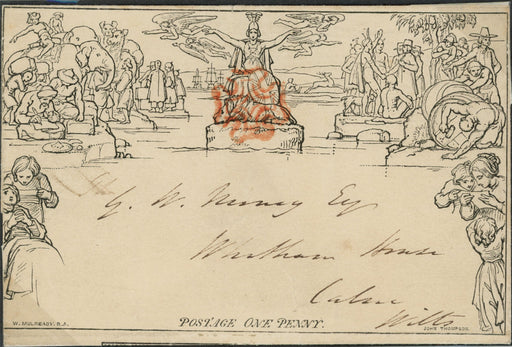 G. W. Esq
House
Calne
Wilts
W. MULREADY. R.A.
POSTAGE ONE PENNY.
JOHN THOMPSON.